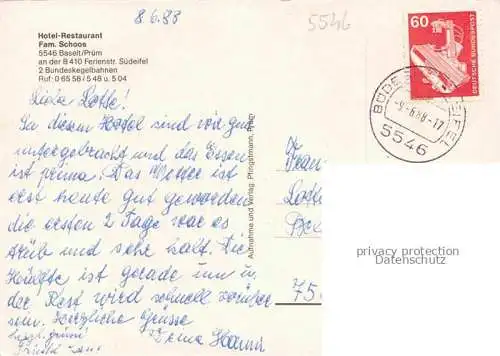 8/6.88
5546
Hotel-Restaurant
Fam. Schoos
5546 Baselt/Prüm
an der B 410 Ferienstr. Südeifel
2 Bundeskegelbahnen
Ruf: 0 65 58 / 5 48 u. 5 04
60
DEUTSCHE BUNDESPOST
-9.-6.88-17
5546
Liebe Lotte!
In diesem Hotel sind wir gut
untergebracht und das Essen
ist prima. Das Wetter ist
erst heute gut geworden
die ersten 2 Tage war es
trüb und sehr kalt. Die
Hälfte ist gerade um u.
der Rest wird schnell vorüber
sein. Herzliche Grüsse
Deine Hanna
Aufnahme und Verlag: Pfingstmann, Prüm
Frau
Lotte
75
privacy protection
Datenschutz